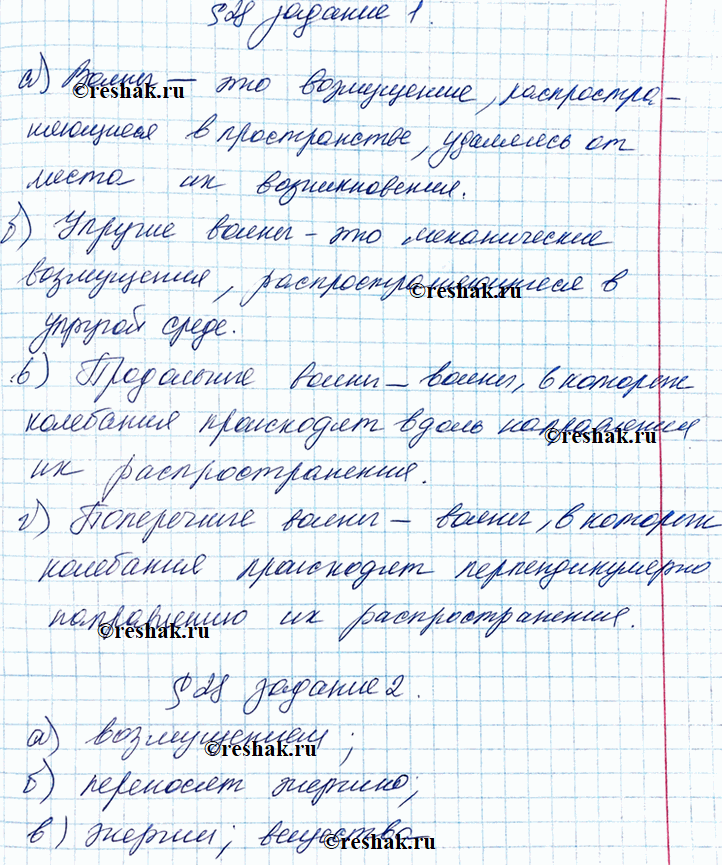 §28 задание 1.
а) Волны — это возмущение, распростра-
няющиеся в пространстве, удаляясь от
места их возникновения.
б) Упругие волны - это механические
возмущения, распространяющиеся в
упругой среде.
в) Продольные волны — волны, в которых
колебания происходят вдоль направления
их распространения.
г) Поперечные волны — волны, в которых
колебания происходят перпендикулярно
направлению их распространения.
§28 задание 2.
а) возмущением;
б) переносят энергию;
в) энергии; вещества-
©reshak.ru
©reshak.ru
©reshak.ru
©reshak.ru
©reshak.ru
©reshak.ru